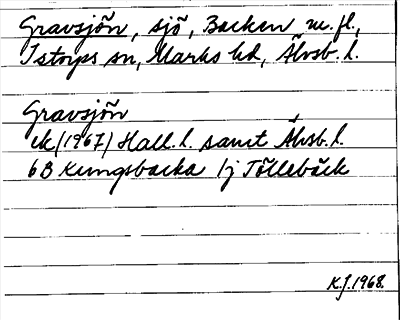 Gravsjön, sjö, Backen m.fl.,
Istorps sn, Marks hd, Älvsb. l.
Gravsjön
ek/(1967) Hall. l. samt Älvsb. l.
6B Kungsbacka 1j Töllebäck
K.J. 1968.